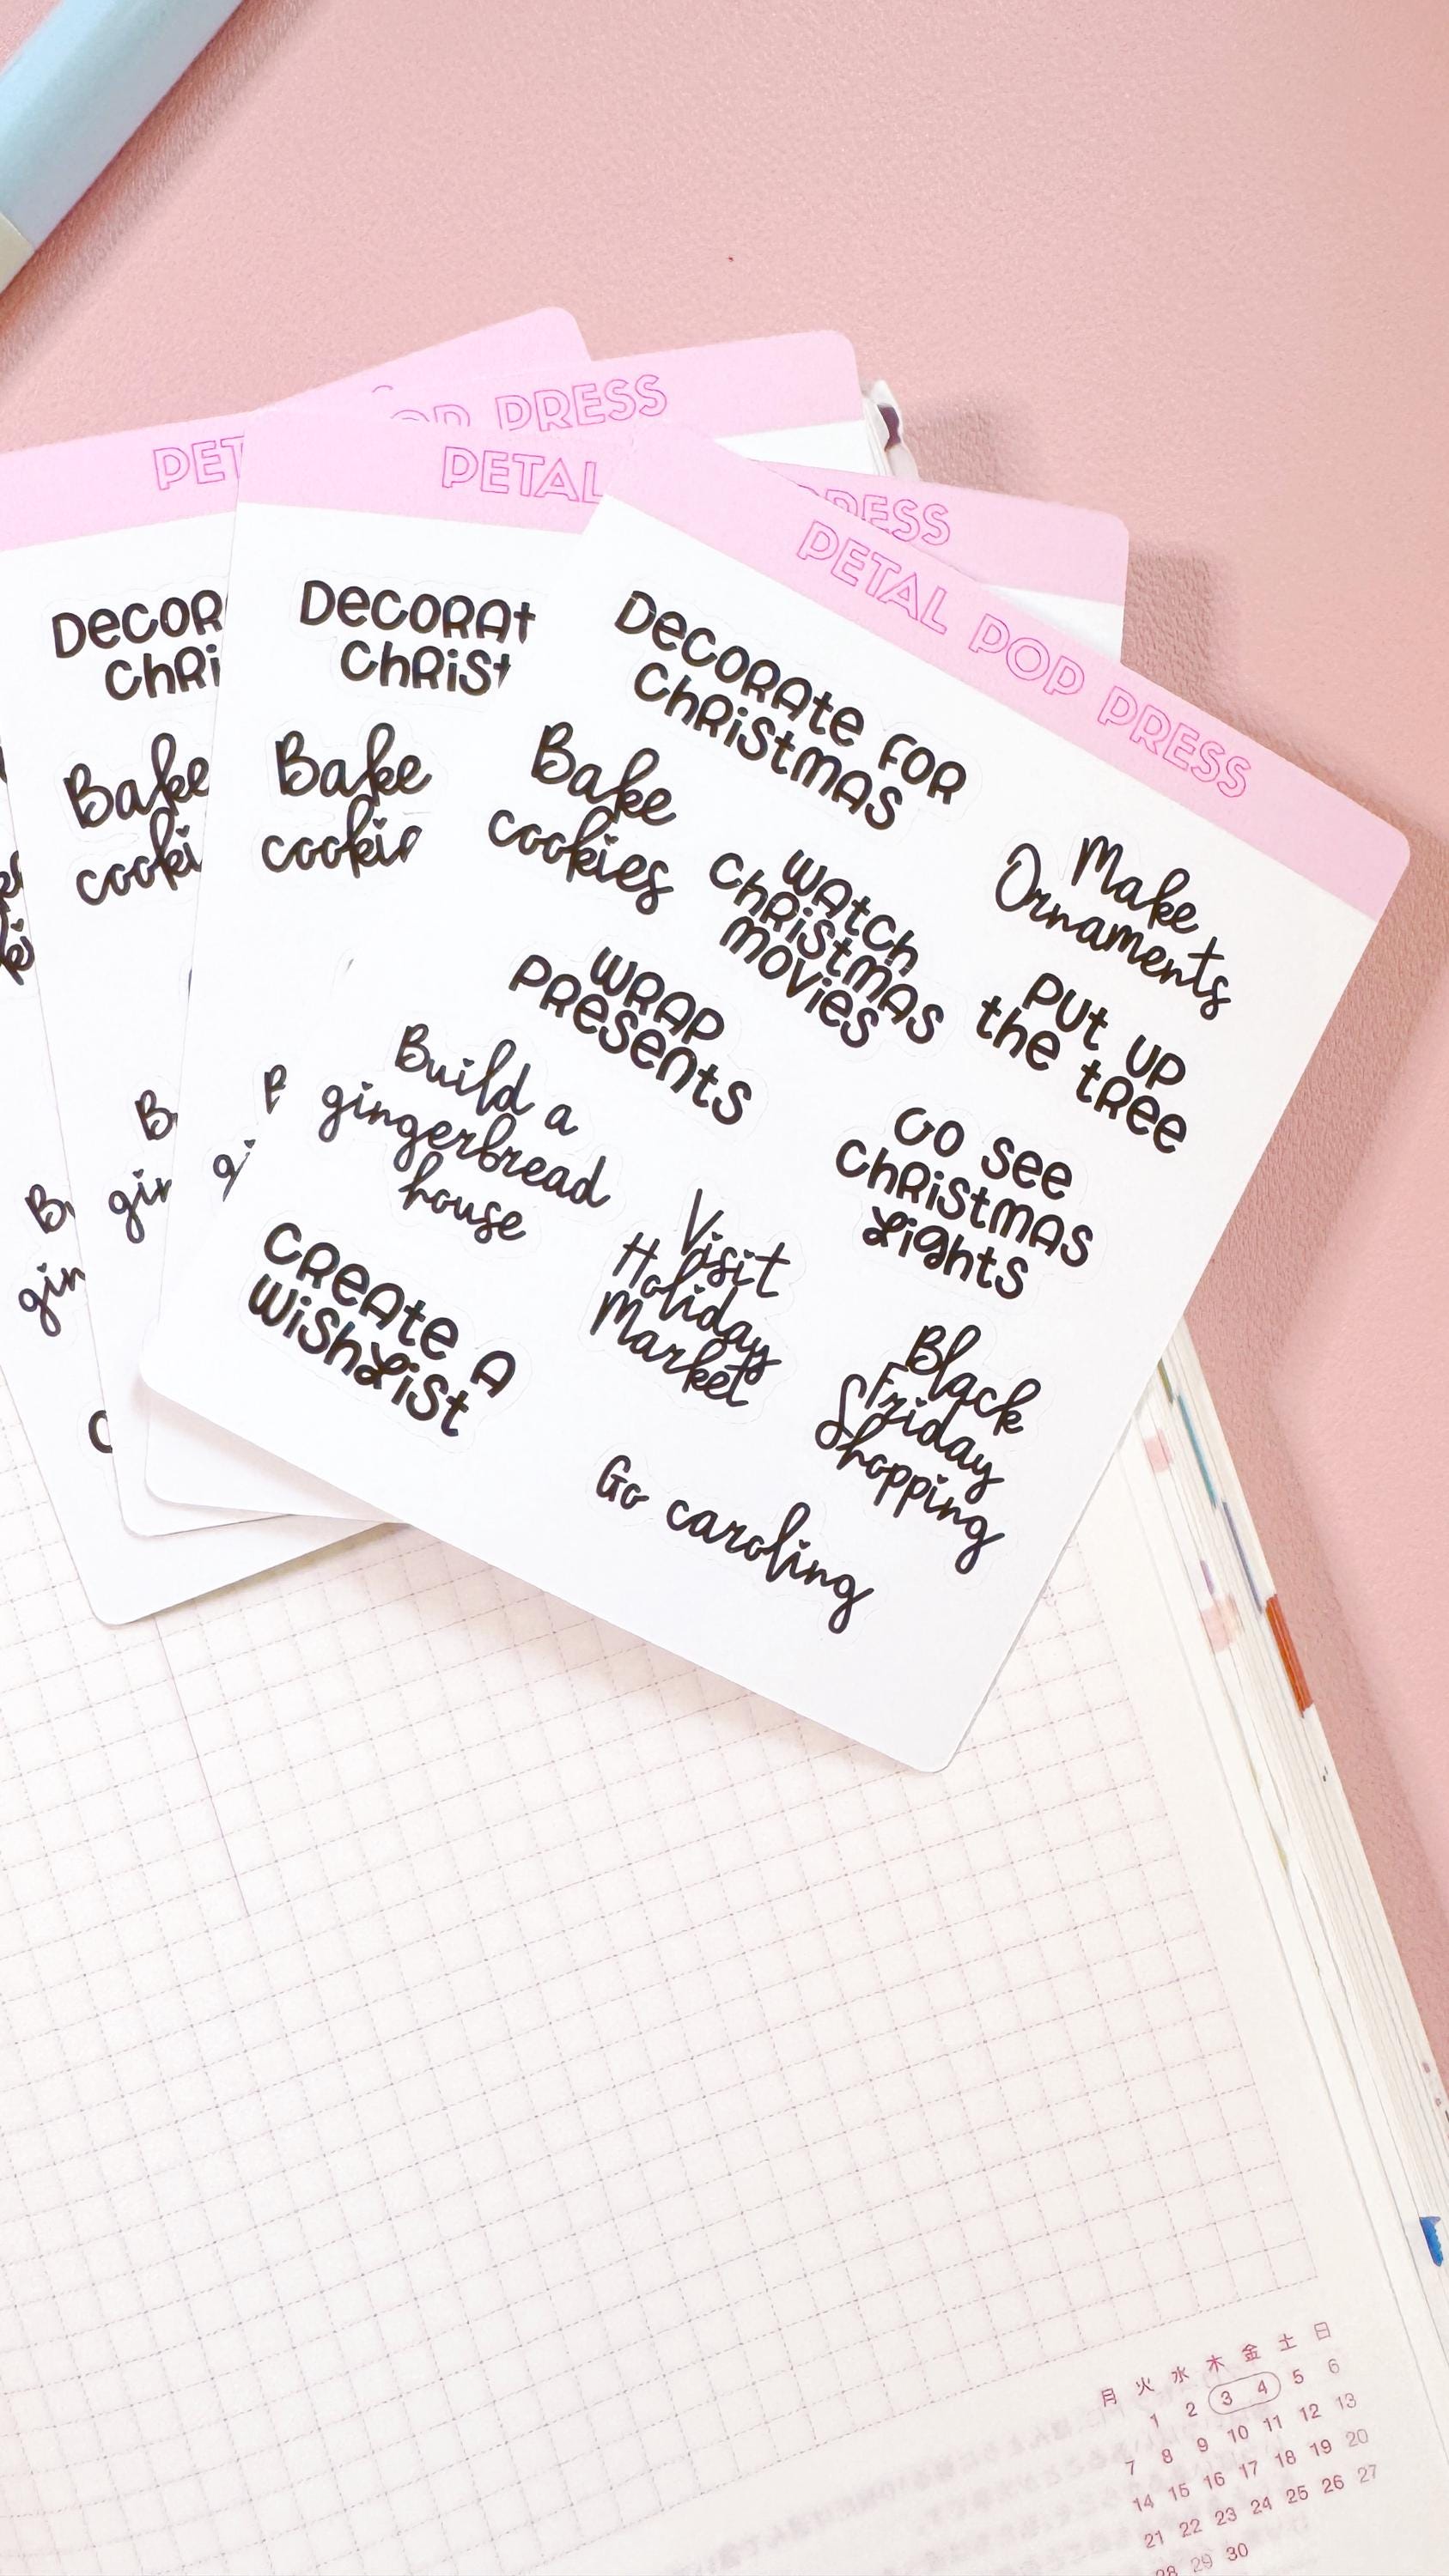 PRESS
PET
PETAL
RESS
PETAL POP PRESS
Decorate for
Christmas
Bake
cookies
Watch
Christmas
movies
Make
Ornaments
Wrap
Presents
Put up
the tree
Build a
gingerbread
house
Go see
Christmas
Lights
Create a
Wishlist
Visit
Holiday
Market
Black
Friday
Shopping
Go caroling
Decor
Chri
Bake
cooki
Decorat
Christ
Bake
cooki
B
gin
B
gin
月 火 水 木 金 土 日
1 2 3 4 5 6
7 8 9 10 11 12 13
14 15 16 17 18 19 20
21 22 23 24 25 26 27
28 29 30